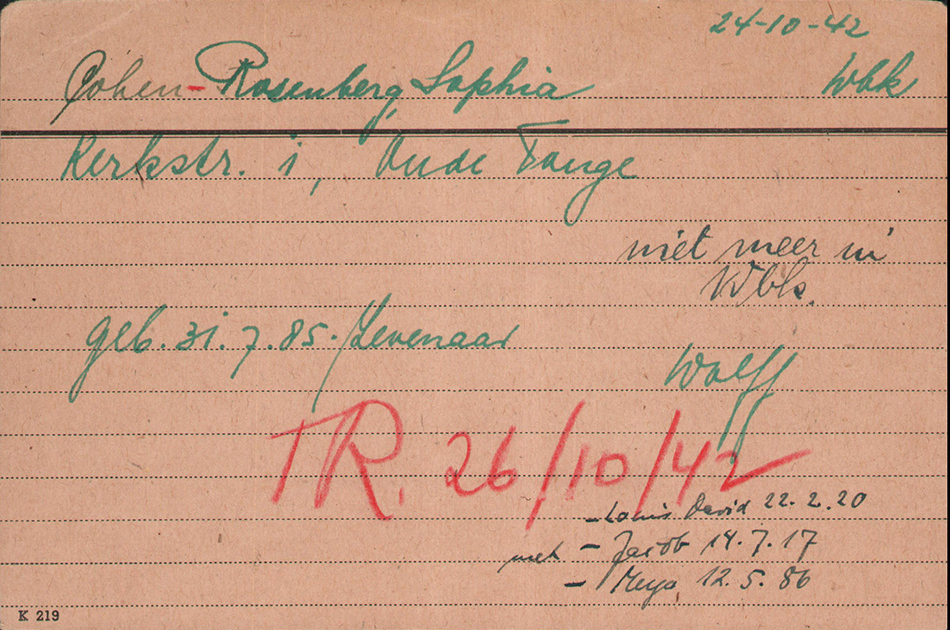 24-10-42
Cohen-Rosenberg, Sophia Wbk
Kerkstr. 1, Oude Tonge
niet meer in
Wbk.
geb. 31.7.85. Zevenaar
Wolff
TR. 26/10/42
- Louis David 22.2.20
met - Jacob 14.7.17
- 12.5.86
K 219